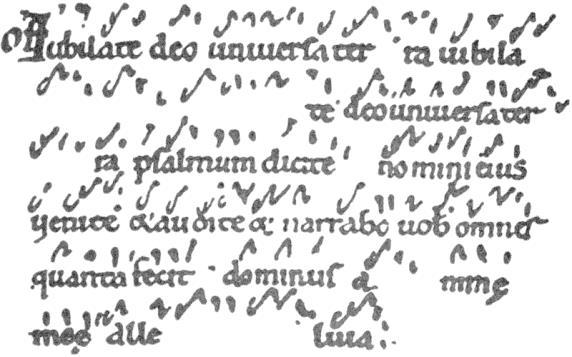 Of Iubilate deo uniuersa ter ra iubila
te deo uniuersa ter
ra psalmum dicite nomini eius
uenite & audite & narrabo uobis omnes
quanta fecit dominus a nimę
męę alle luia.